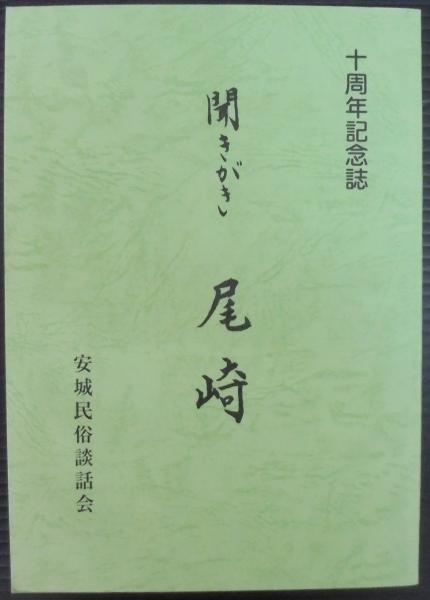 十周年記念誌
聞きがき 尾崎
安城民俗談話会